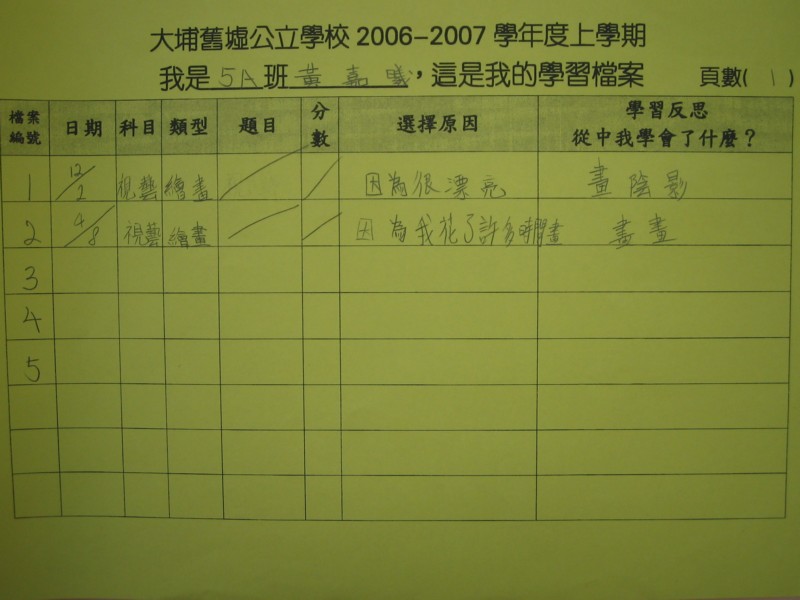 大埔舊墟公立學校 2006-2007 學年度上學期
我是 5A 班 黃嘉曦，這是我的學習檔案 頁數( 1 )
檔案編號 日期 科目 類型 題目 分數 選擇原因 學習反思 從中我學會了什麼？
1 12/2 視藝 繪畫 因為很漂亮 畫陰影
2 4/8 視藝 繪畫 因為我花了許多時間畫 畫畫
3
4
5